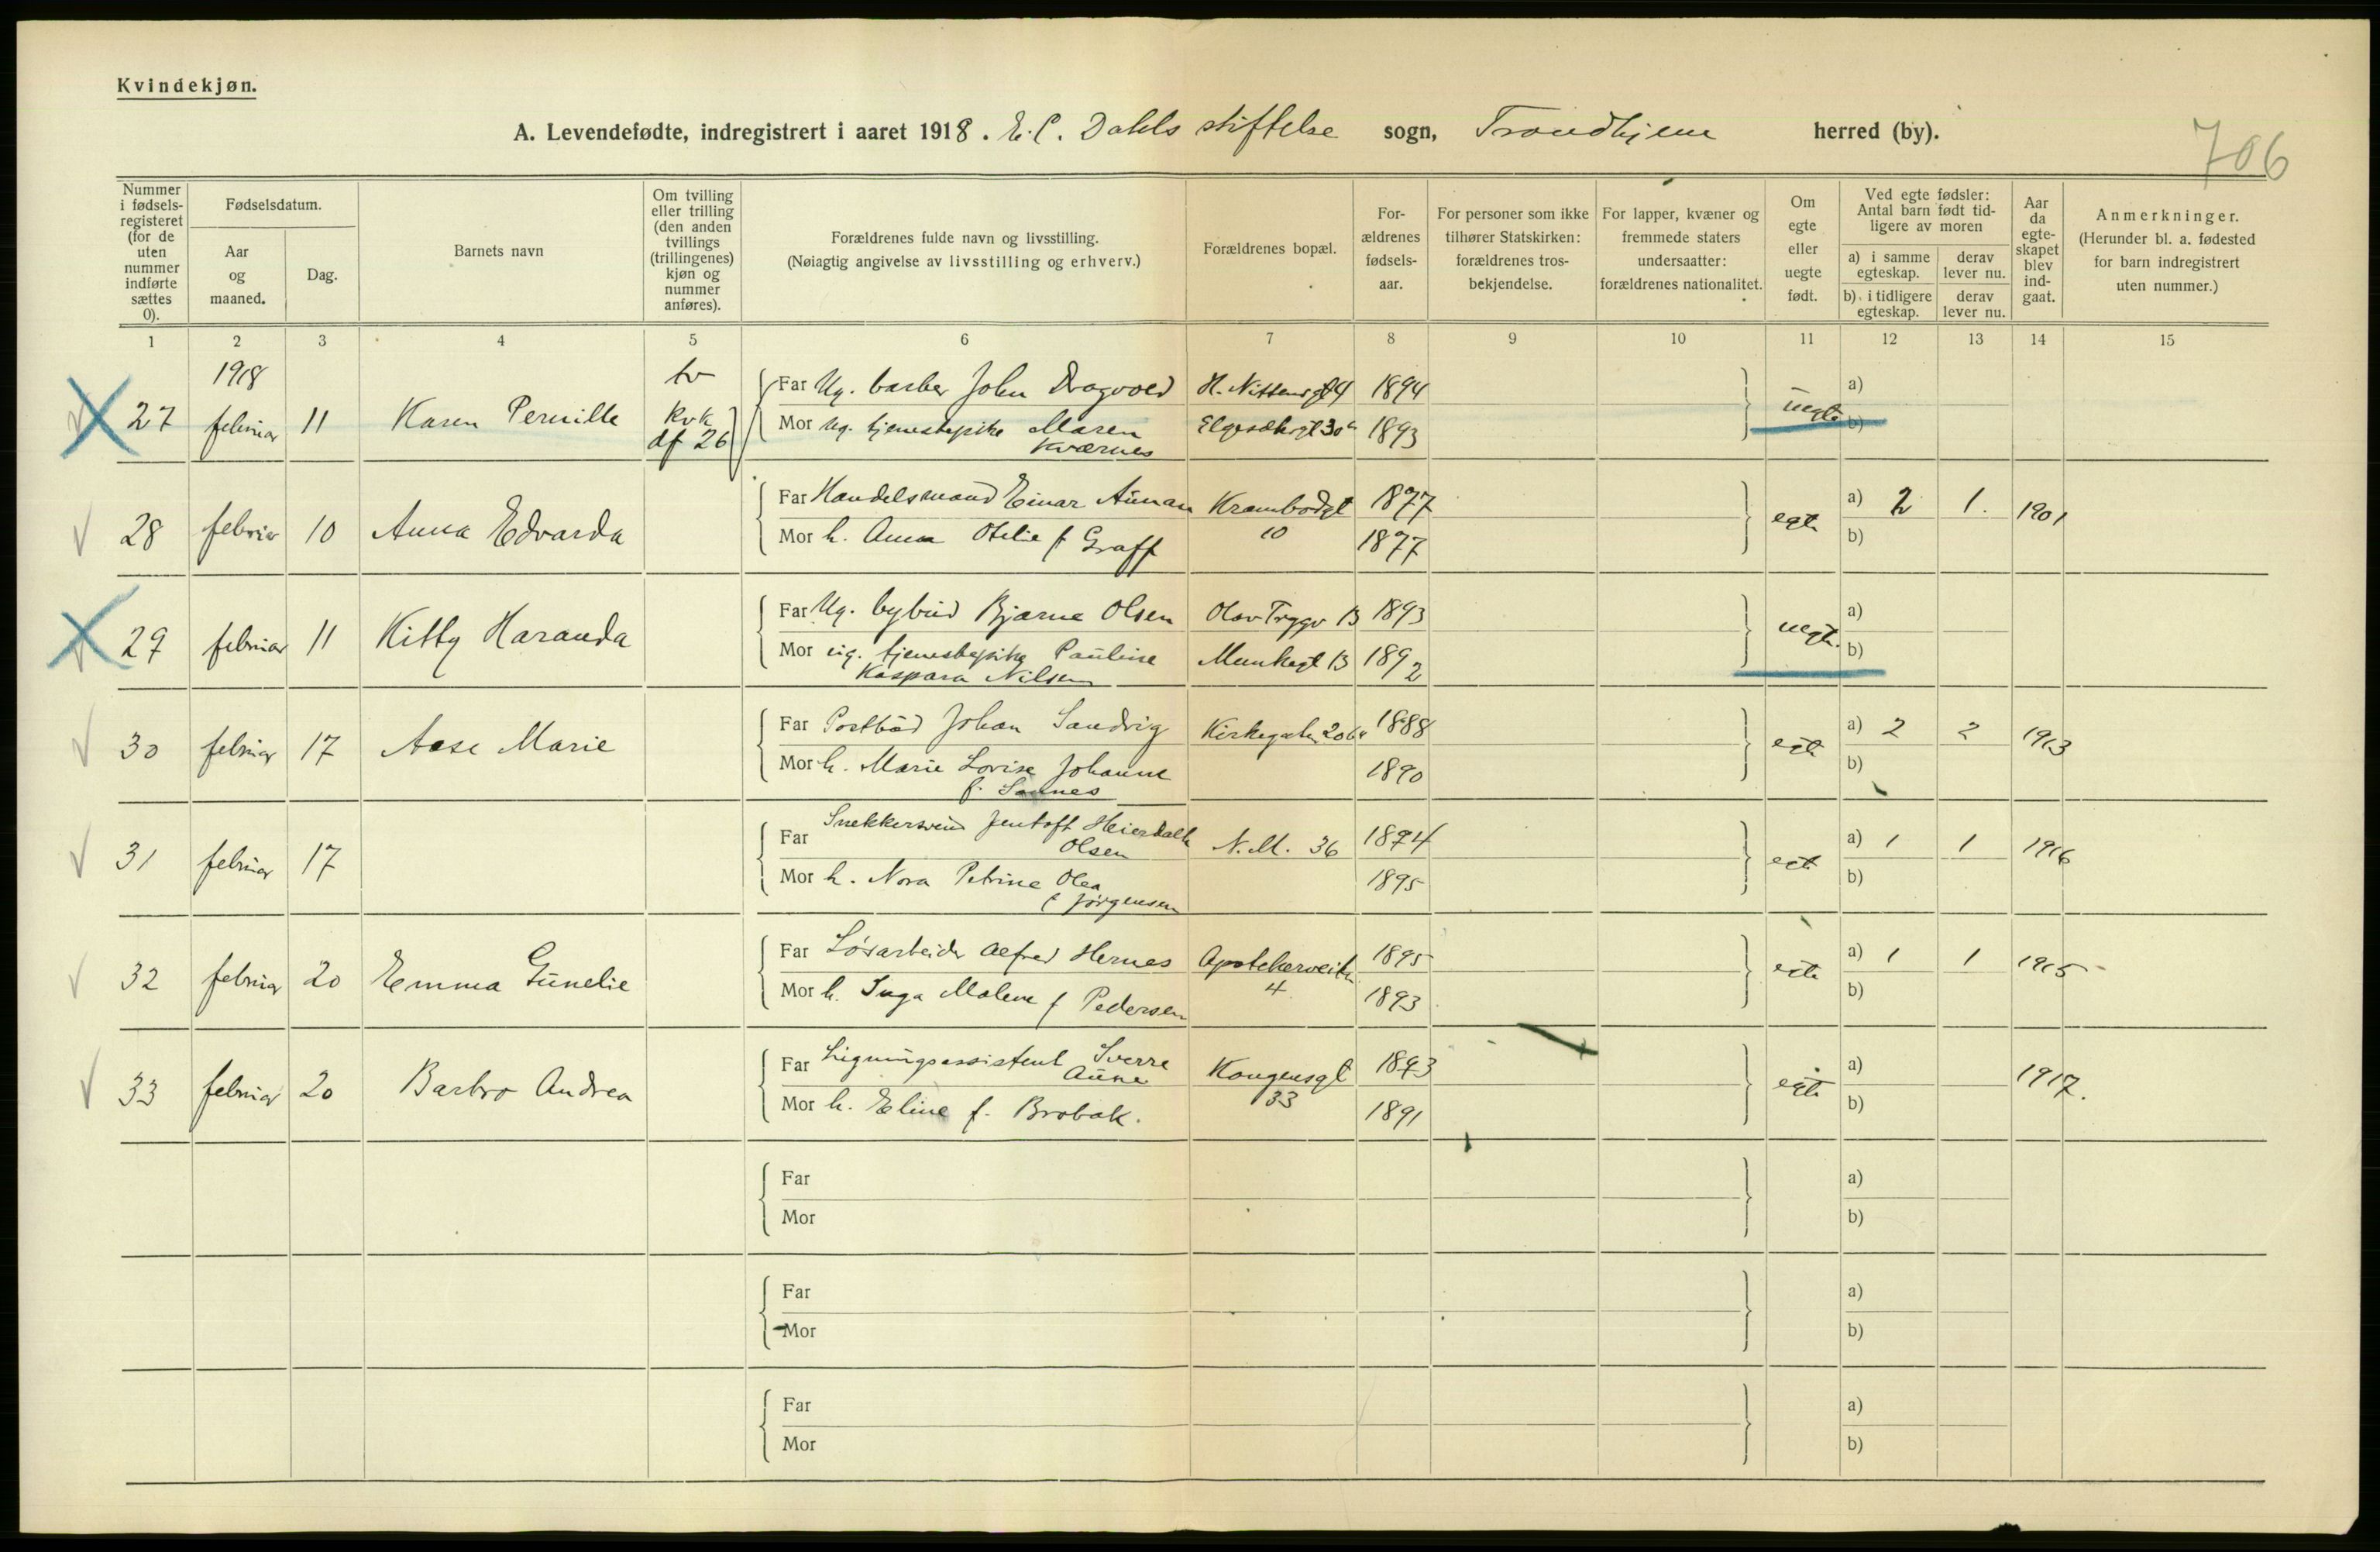 Kvindekjøn.
A. Levendefødte, indregistrert i aaret 1918. E. C. Dahls stiftelse sogn, Trondhjem herred (by).
706
Nummer i fødsels-registeret (for de uten nummer indførte sættes 0).
Fødselsdatum.
Aar og maaned.
Dag.
Barnets navn
Om tvilling eller trilling (den anden tvillings (trillingenes) kjøn og nummer anføres).
Forældrenes fulde navn og livsstilling.
(Nøiagtig angivelse av livsstilling og erhverv.)
Forældrenes bopæl.
For-ældrenes fødsels-aar.
For personer som ikke tilhører Statskirken: forældrenes tros-bekjendelse.
For lapper, kvæner og fremmede staters undersaatter: forældrenes nationalitet.
Om egte eller uegte født.
Ved egte fødsler: Antal barn født tid-ligere av moren
a) i samme egteskap.
derav lever nu.
b) i tidligere egteskap.
derav lever nu.
Aar da egte-skapet blev ind-gaat.
Anmerkninger.
(Herunder bl. a. fødested for barn indregistrert uten nummer.)
1 2 3 4 5 6 7 8 9 10 11 12 13 14 15
1918
27 februar 11 Karen Pernille tv kvk af 26
Far Ug. barber John Dragvold 1894
Mor ug. tjenestepike Maren Kværnes 1893
uegte a) b)
28 februar 10 Anna Edvarda
Far Handelsmand Einar Aunan Krambodgt 10 1877
Mor h. Anna Otilie f Graff 1877
egte a) 2 1. b) 1901
29 februar 11 Kitty Haranda
Far Ug. bybud Bjarne Olsen Olav Trygv 13 1893
Mor ug. tjenestepike Pauline Kaspara Nilsen Munkegt 13 1892
uegte. a) b)
30 februar 17 Aase Marie
Far Postbud Johan Sandvig Kirkegaten 1888
Mor h. Marie Lovise Johanne f. 1890
egte a) 2 2 b) 1913
31 februar 17
Far Snekkersvend Jentoft Olsen N.M. 36 1894
Mor h. Nora Petrine Olea f Jørgensen 1895
egte a) 1 1 b) 1916
32 februar 20 Emma Gunelie
Far Løsarbeider Alfred Hernes Apotekerveiten 4 1895
Mor h. Inga Malene f Pedersen 1893
egte a) 1 1 b) 1915
33 februar 20 Barbro Andrea
Far Ligningsassistent Sverre Aune Kongensgt 33 1893
Mor h. Eline f. Brobak. 1891
egte a) b) 1917.
Far
Mor
a)
b)
Far
Mor
a)
b)
Far
Mor
a)
b)